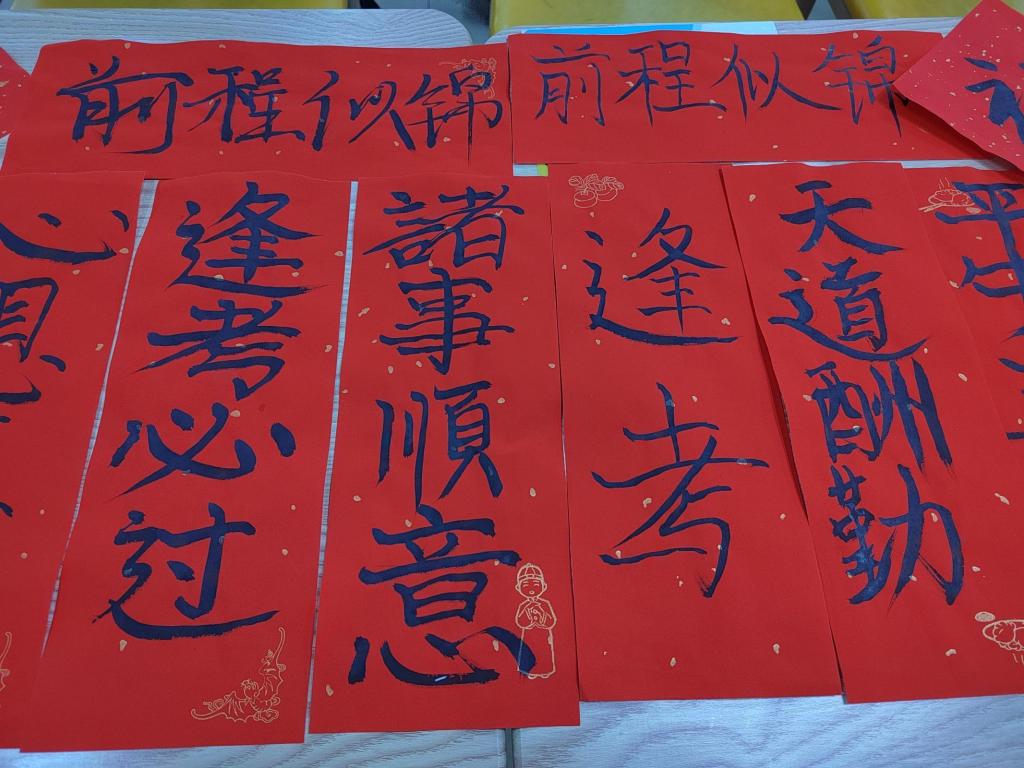 前程似锦
前程似锦
心
逢考必过
諸事順意
逢考
天道酬勤
平生